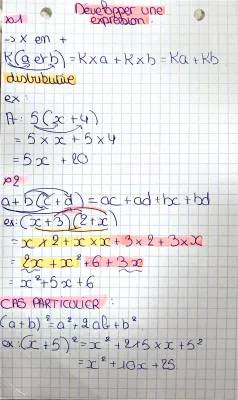 Développer une
expression.
n°1
→ x en +
K(a+b) = K×a + K×b = Ka + Kb
distributive
ex:
A: 5(x+4)
= 5 × x + 5 × 4
= 5x + 20
n°2
a+b(c+d) = ac + ad + bc + bd
ex: (x+3)(2+x)
= x×2 + x×x + 3×2 + 3×x
= 2x + x² + 6 + 3x
= x² + 5x + 6
CAS PARTICULIER :
(a+b)² = a² + 2ab + b²
ex: (x+5)² = x² + 2×5×x + 5²
= x² + 10x + 25